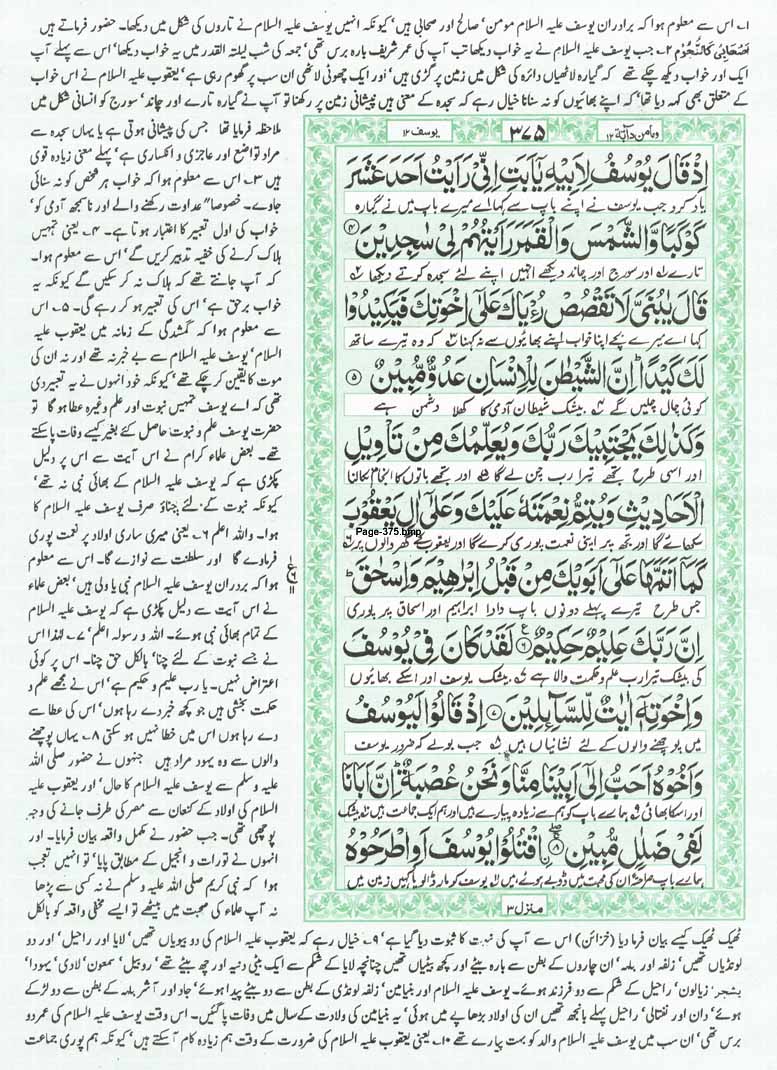 ۱۔ اس سے معلوم ہوا کہ برادران یوسف علیہ السلام مومن' صالح اور صحابی ہیں' کیونکہ انہیں یوسف علیہ السلام نے تاروں کی شکل میں دیکھا۔ حضور فرماتے ہیں
اَصْحَابِیْ کَالنُّجُوْمِ ۲۔ جب یوسف علیہ السلام نے یہ خواب دیکھا تب آپ کی عمر شریف بارہ برس تھی' جمعہ کی شب لیلتہ القدر میں یہ خواب دیکھا' اس سے پہلے آپ
ایک اور خواب دیکھ چکے تھے کہ گیارہ لاٹھیاں دائرہ کی شکل میں زمین پر گڑی ہیں' اور ایک چھوٹی لاٹھی ان سب پر گھوم رہی ہے' یعقوب علیہ السلام نے اس خواب
کے متعلق بھی کہہ دیا تھا' کہ اپنے بھائیوں کو نہ سنانا خیال رہے کہ سجدہ کے معنی ہیں پیشانی زمین پر رکھنا تو آپ نے گیارہ تارے اور چاند' سورج کو انسانی شکل میں
ومامن دآبۃ ۱۲
۳۷۵
یوسف ۱۲
اِذْ قَالَ یُوْسُفُ لِاَبِیْہِ یٰۤاَبَتِ اِنِّیْ رَاَیْتُ اَحَدَ عَشَرَ
یاد کرو جب یوسف نے اپنے باپ سے کہا اے میرے باپ میں نے گیارہ
کَوْکَبًا وَّ الشَّمْسَ وَ الْقَمَرَ رَاَیْتُہُمْ لِیْ سٰجِدِیْنَ ۴
تارے ۱ اور سورج اور چاند دیکھے انہیں اپنے لئے سجدہ کرتے دیکھا ۲
قَالَ یٰبُنَیَّ لَا تَقْصُصْ رُءْیَاکَ عَلٰۤی اِخْوَتِکَ فَیَکِیْدُوْا
کہا اے میرے بچے اپنا خواب اپنے بھائیوں سے نہ کہنا ۳ کہ وہ تیرے ساتھ
لَکَ کَیْدًا ؕ اِنَّ الشَّیْطٰنَ لِلْاِنْسَانِ عَدُوٌّ مُّبِیْنٌ ۵
کوئی چال چلیں گے ۴ بیشک شیطان آدمی کا کھلا دشمن ہے
وَ کَذٰلِکَ یَجْتَبِیْکَ رَبُّکَ وَ یُعَلِّمُکَ مِنْ تَاْوِیْلِ
اور اسی طرح تجھے تیرا رب چن لے گا ۵ اور تجھے باتوں کا انجام نکالنا
الْاَحَادِیْثِ وَ یُتِمُّ نِعْمَتَہٗ عَلَیْکَ وَ عَلٰۤی اٰلِ یَعْقُوْبَ
سکھائے گا اور تجھ پر اپنی نعمت پوری کرے گا اور یعقوب کے گھر والوں پر ۶
Page-375.bmp
کَمَاۤ اَتَمَّہَا عَلٰۤی اَبَوَیْکَ مِنْ قَبْلُ اِبْرٰہِیْمَ وَ اِسْحٰقَ ؕ
جس طرح تیرے پہلے دونوں باپ دادا ابراہیم اور اسحاق پر پوری
اِنَّ رَبَّکَ عَلِیْمٌ حَکِیْمٌ ۶ لَقَدْ کَانَ فِیْ یُوْسُفَ
کی بیشک تیرا رب علم و حکمت والا ہے ۷ بیشک یوسف اور اسکے بھائیوں
وَ اِخْوَتِہٖۤ اٰیٰتٌ لِّلسَّآئِلِیْنَ ۷ اِذْ قَالُوْا لَیُوْسُفُ
میں پوچھنے والوں کے لئے نشانیاں ہیں ۸ جب بولے کہ ضرور یوسف
وَ اَخُوْہُ اَحَبُّ اِلٰۤی اَبِیْنَا مِنَّا وَ نَحْنُ عُصْبَۃٌ ؕ اِنَّ اَبَانَا
اور اسکا بھائی ۹ ہمارے باپ کو ہم سے زیادہ پیارے ہیں اور ہم ایک جماعت ہیں ۱۰ بیشک
لَفِیْ ضَلٰلٍ مُّبِیْنِ ۸ اقْتُلُوْا یُوْسُفَ اَوِ اطْرَحُوْہُ
ہمارے باپ صراحۃً ان کی محبت میں ڈوبے ہوئے ہیں ۱۱ یوسف کو مار ڈالو یا کہیں زمین میں
منزل ۳
ملاحظہ فرمایا تھا جس کی پیشانی ہوتی ہے یا یہاں سجدہ سے
مراد تواضع اور عاجزی و انکساری ہے' پہلے معنی زیادہ قوی
ہیں ۳۔ اس سے معلوم ہوا کہ خواب ہر شخص کو نہ سنائی
جاوے۔ خصوصاً عداوت رکھنے والے اور ناسمجھ آدمی کو'
خواب کی اول تعبیر کا اعتبار ہوتا ہے۔ ۴۔ یعنی تمہیں
ہلاک کرنے کی خفیہ تدبیر کریں گے' اس سے معلوم ہوا۔
کہ آپ جانتے تھے کہ ہلاک نہ کر سکیں گے کیونکہ یہ
خواب برحق ہے' اس کی تعبیر ہو کر رہے گی۔ ۵۔ اس
سے معلوم ہوا کہ گمشدگی کے زمانہ میں یعقوب علیہ
السلام' یوسف علیہ السلام سے بے خبر نہ تھے اور نہ ان کی
موت کا یقین کر چکے تھے' کیونکہ خود انہوں نے یہ تعبیر دی
تھی کہ اے یوسف تمہیں نبوت اور علم وغیرہ عطا ہو گا تو
حضرت یوسف علم و نبوت حاصل کئے بغیر کیسے وفات پا سکتے
تھے۔ بعض علماء کرام نے اس آیت سے اس پر دلیل
پکڑی ہے کہ یوسف علیہ السلام کے بھائی نبی نہ تھے'
کیونکہ نبوت کے لئے چناؤ صرف یوسف علیہ السلام کا
ہوا۔ واللہ اعلم ۶۔ یعنی میری ساری اولاد پر نعمت پوری
فرماوے گا اور سلطنت سے نوازے گا۔ اس سے معلوم
ہوا کہ برادران یوسف علیہ السلام نبی یا ولی ہیں' بعض علماء
نے اس آیت سے دلیل پکڑی ہے کہ یوسف علیہ السلام
کے تمام بھائی نبی ہوئے۔ اللہ و رسولہ اعلم' ۷۔ لہٰذا اس
نے جسے نبوت کے لئے چنا' بالکل حق چنا۔ اس پر کوئی
اعتراض نہیں۔ یا رب علیم و حکیم ہے' اس نے مجھے علم و
حکمت بخشی ہیں جو کچھ خبر دے رہا ہوں' اس کی عطا سے
دے رہا ہوں اس میں خطا نہیں ہو سکتی ۸۔ یہاں پوچھنے
والوں سے وہ یہود مراد ہیں جنہوں نے حضور صلی اللہ
علیہ وسلم سے یوسف علیہ السلام کا حال' اور یعقوب علیہ
السلام کی اولاد کے کنعان سے مصر کی طرف جانے کی وجہ
پوچھی تھی۔ جب حضور نے مکمل واقعہ بیان فرمایا۔ اور
انہوں نے تورات و انجیل کے مطابق پایا' تو انہیں تعجب
ہوا کہ نبی کریم صلی اللہ علیہ وسلم نے نہ کسی سے پڑھا
نہ آپ علماء کی صحبت میں بیٹھے تو ایسے مخفی واقعہ کو بالکل
ٹھیک ٹھیک کیسے بیان فرما دیا (خزائن) اس سے آپ کی نبوت کا ثبوت دیا گیا ہے' ۹۔ خیال رہے کہ یعقوب علیہ السلام کی دو بیویاں تھیں' لایا اور راحیل' اور دو
لونڈیاں تھیں' زلفہ اور بلہہ' ان چاروں کے بطن سے بارہ بیٹے اور کچھ بیٹیاں تھیں چنانچہ لایا کے شکم سے ایک بیٹی دنیہ اور چھ بیٹے تھے' روبیل' سمعون' لاوی' یہودا'
یشجر' زبالون' راحیل کے شکم سے دو فرزند ہوئے۔ یوسف علیہ السلام اور بنیامین' زلفہ لونڈی کے بطن سے دو بیٹے پیدا ہوئے' جاد اور آشر بلہہ کے بطن سے دو لڑکے
ہوئے' دان اور نفتالی' راحیل پہلے بانجھ تھیں ان کی اولاد بڑھاپے میں ہوئی' یہ بنیامین کی ولادت کے سال میں وفات پا گئیں۔ اس وقت یوسف علیہ السلام کی عمر دو
برس تھی' ان سب میں یوسف علیہ السلام والد کو بہت پیارے تھے ۱۰۔ یعنی یعقوب علیہ السلام کی ضرورت کے وقت ہم زیادہ کام آ سکتے ہیں' کیونکہ ہم پوری جماعت